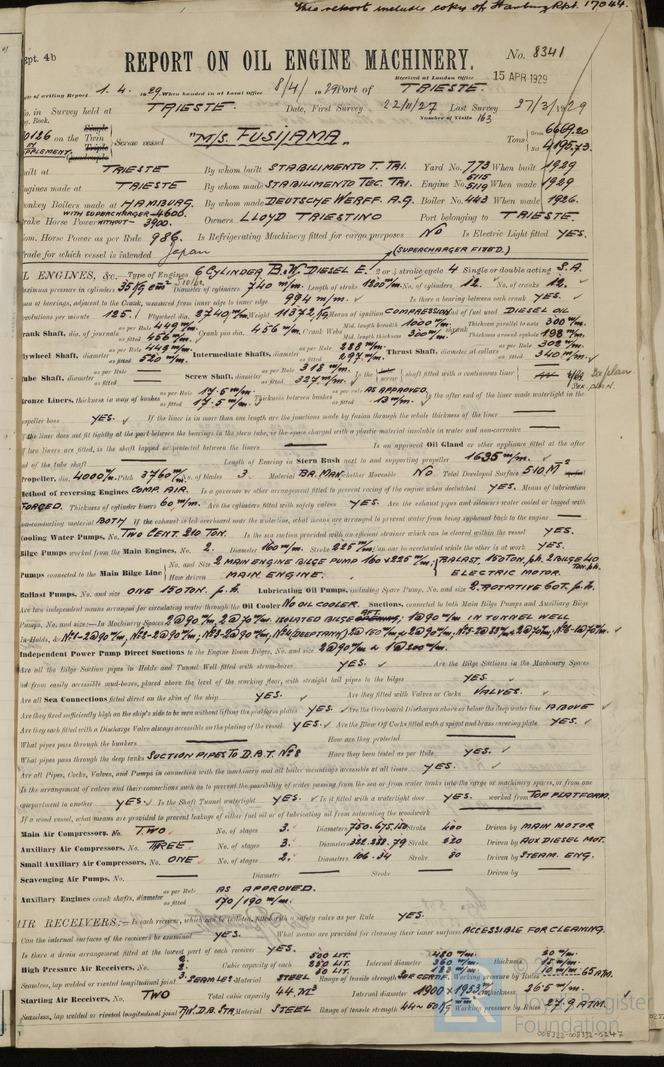 This report includes copy of Hamburg Rpt. 17044.
Rpt. 4b
REPORT ON OIL ENGINE MACHINERY.
No. 8341
Received at London Office 15 APR 1929
of writing Report 1.4.1929 When handed in at Local Office 8/4/1929 Port of TRIESTE.
No. in Survey held at TRIESTE Date, First Survey 22/11/27 Last Survey 27/3/1929
Book. Number of Visits 163
on the Single Twin Triple Quadruple Screw vessel "M/S. FUSIJAMA" Tons Gross 6669.20 Net 4195.73
Built at TRIESTE By whom built STABILIMENTO T. TRI. Yard No. 773 When built 1929
Engines made at TRIESTE By whom made STABILIMENTO TEC. TRI. Engine No. 5119 When made 1929
Donkey Boilers made at HAMBURG. By whom made DEUTSCHE WERFF. A.G. Boiler No. 443 When made 1926.
Brake Horse Power WITH SUPERCHARGER 4600. WITHOUT 3900. Owners LLOYD TRIESTINO Port belonging to TRIESTE
Nom. Horse Power as per Rule 986. Is Refrigerating Machinery fitted for cargo purposes NO Is Electric Light fitted YES.
Trade for which vessel is intended Japan (SUPERCHARGER FIXED.)
OIL ENGINES, &c. Type of Engines 6 CYLINDER B.&W. DIESEL E. 2 or 4 stroke cycle 4 Single or double acting S.A.
Maximum pressure in cylinders 35 Kg cm² Diameter of cylinders 740 m/m. Length of stroke 1200 m/m. No. of cylinders 12. No. of cranks 12.
Span of bearings, adjacent to the Crank, measured from inner edge to inner edge 994 m/m. Is there a bearing between each crank YES.
Revolutions per minute 125. Flywheel dia. 2740 m/m. Weight 11372 Kg. Means of ignition COMPRESSION Kind of fuel used DIESEL OIL
Crank Shaft, dia. of journals as per Rule 449 m/m. as fitted 456 m/m. Crank pin dia. 456 m/m. Crank Webs Mid. length breadth 1000 m/m. Mid. length thickness 300 m/m. Thickness parallel to axis 300 m/m. Thickness around eyehole 198 m/m.
Flywheel Shaft, diameter as per Rule 449 m/m. as fitted 520 m/m. Intermediate Shafts, diameter as per Rule 288 m/m. as fitted 297 m/m. Thrust Shaft, diameter at collars as per Rule 302 m/m. as fitted 340 m/m.
Tube Shaft, diameter as per Rule as fitted Screw Shaft, diameter as per Rule 318 m/m. as fitted 327 m/m. Is the screw shaft fitted with a continuous liner
Bronze Liners, thickness in way of bushes as per Rule 17.5 m/m. as fitted 17.5 m/m. Thickness between bushes as per Rule AS APPROVED. as fitted 13 m/m. Is the after end of the liner made watertight in the
propeller boss YES. If the liner is in more than one length are the junctions made by fusion through the whole thickness of the liner
If the liner does not fit tightly at the part between the bearings in the stern tube, is the space charged with a plastic material insoluble in water and non-corrosive
If two liners are fitted, is the shaft lapped or protected between the liners Is an approved Oil Gland or other appliance fitted at the after
end of the tube shaft Length of Bearing in Stern Bush next to and supporting propeller 1635 m/m.
Propeller, dia. 4000 m/m. Pitch 3760 m/m. No. of blades 3. Material BR. MAN. whether Moveable NO Total Developed Surface 5.10 M²
Method of reversing Engines COMP. AIR. Is a governor or other arrangement fitted to prevent racing of the engine when declutched YES. Means of lubrication
FORCED. Thickness of cylinder liners 60 m/m. Are the cylinders fitted with safety valves YES. Are the exhaust pipes and silencers water cooled or lagged with
non-conducting material BOTH If the exhaust is led overboard near the waterline, what means are arranged to prevent water from being syphoned back to the engine
Cooling Water Pumps, No. TWO CENT. 210 TON. Is the sea suction provided with an efficient strainer which can be cleared within the vessel YES.
Bilge Pumps worked from the Main Engines, No. 2. Diameter 160 m/m. Stroke 225 m/m. Can one be overhauled while the other is at work YES.
Pumps connected to the Main Bilge Line No. and Size 2 MAIN ENGINE BILGE PUMP 160 x 225 m/m; BALAST, 150 TON. p.h. 2 BILGE 40 TON. p.h.
How driven MAIN ENGINE. ELECTRIC MOTOR
Ballast Pumps, No. and size ONE 150 TON. p.h. Lubricating Oil Pumps, including Spare Pump, No. and size 2. ROTATIVE 60 T. p.h.
Are two independent means arranged for circulating water through the Oil Cooler NO OIL COOLER. Suctions, connected to both Main Bilge Pumps and Auxiliary Bilge
Pumps, No. and size:—In Machinery Spaces 2@90 m/m, 2@70 m/m. ISOLATED BILGE AFT 1@90 m/m. IN TUNNEL WELL
In Holds, &c. Nº1-2@90 m/m, Nº2-2@90 m/m, Nº3-2@90 m/m, Nº4 (DEEPTANK)
Independent Power Pump Direct Suctions to the Engine Room Bilges, No. and size 2@90 m/m & 1@200 m/m.
Are all the Bilge Suction pipes in Holds and Tunnel Well fitted with strum-boxes YES. Are the Bilge Suctions in the Machinery Spaces
led from easily accessible mud-boxes, placed above the level of the working floor, with straight tail pipes to the bilges YES.
Are all Sea Connections fitted direct on the skin of the ship YES. Are they fitted with Valves or Cocks VALVES.
Are they fixed sufficiently high on the ship's side to be seen without lifting the platform plates YES. Are the Overboard Discharges above or below the deep water line ABOVE
Are they each fitted with a Discharge Valve always accessible on the plating of the vessel YES. Are the Blow Off Cocks fitted with a spigot and brass covering plate YES.
What pipes pass through the bunkers How are they protected
What pipes pass through the deep tanks SUCTION PIPES TO D.B.T. Nº8 Have they been tested as per Rule YES.
Are all Pipes, Cocks, Valves, and Pumps in connection with the machinery and all boiler mountings accessible at all times YES.
Is the arrangement of valves and their connections such as to prevent the possibility of water passing from the sea or from water tanks into the cargo or machinery spaces, or from one
compartment to another YES. Is the Shaft Tunnel watertight YES. Is it fitted with a watertight door YES. worked from TOP PLATFORM.
If a wood vessel, what means are provided to prevent leakage of either fuel oil or of lubricating oil from saturating the woodwork
Main Air Compressors, No. TWO. No. of stages 3. Diameters 750.675.150 Stroke 400 Driven by MAIN MOTOR
Auxiliary Air Compressors, No. THREE. No. of stages 3. Diameters 322.288.79 Stroke 220 Driven by AUX DIESEL MOT.
Small Auxiliary Air Compressors, No. ONE No. of stages 2. Diameters 106.34 Stroke 80 Driven by STEAM. ENG.
Scavenging Air Pumps, No. Diameter Stroke Driven by
Auxiliary Engines crank shafts, diameter as per Rule AS APPROVED. as fitted 170/190 m/m.
AIR RECEIVERS:—Is each receiver, which can be isolated, fitted with a safety valve as per Rule YES.
Can the internal surfaces of the receivers be examined YES. What means are provided for cleaning their inner surfaces ACCESSIBLE FOR CLEANING.
Is there a drain arrangement fitted at the lowest part of each receiver YES.
High Pressure Air Receivers, No. Cubic capacity of each 500 LIT. 250 LIT. 50 LIT. Internal diameter thickness
Seamless, lap welded or riveted longitudinal joint SEAMLES. Material STEEL Range of tensile strength SEE CERTIF. Working pressure by Rules 65 ATM.
Starting Air Receivers, No. TWO Total cubic capacity 44. M³ Internal diameter 1900 x 1953 m/m thickness 26.5 m/m.
Seamless, lap welded or riveted longitudinal joint RIV. D.B. STR. Material STEEL Range of tensile strength 44~50 Working pressure by Rules 27.9 ATM.
Lloyd's Register
Foundation
008322-008332-0247